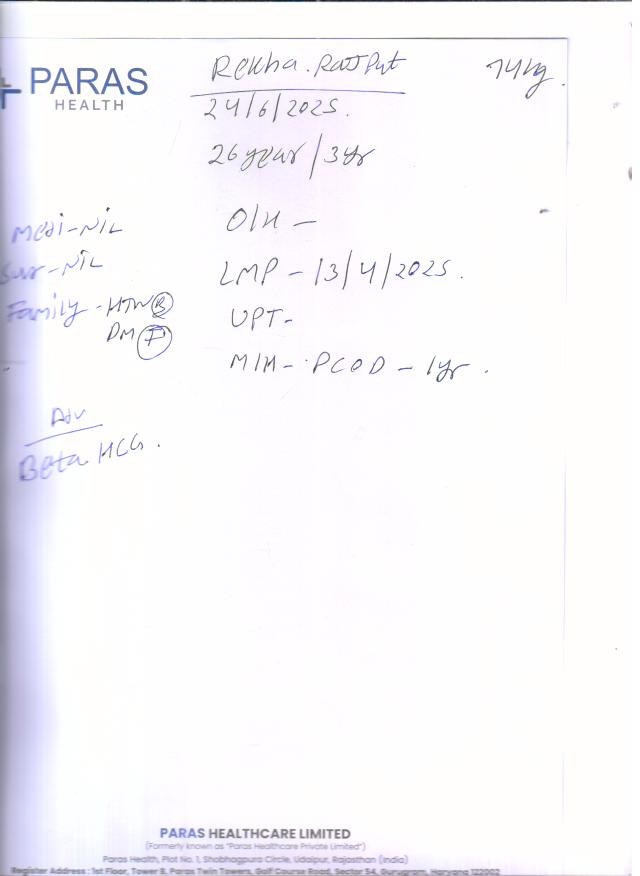 PARAS
HEALTH
Rekha. Rajput
74kg.
24/6/2025.
26year/3yr
Medi-NIL
Sur-NIL
Family-HTN(B)
DM(F)
O/H -
LMP - 13/4/2025.
UPT-
M/H - PCOD - 1yr.
Adv
Beta HCG.
PARAS HEALTHCARE LIMITED
(Formerly known as "Paras Healthcare Private Limited")
Paras Health, Plot No. 1, Shobhagpura Circle, Udaipur, Rajasthan (India)
Register Address : 1st Floor, Tower B, Paras Twin Towers, Golf Course Road, Sector 54, Gurugram, Haryana 122002